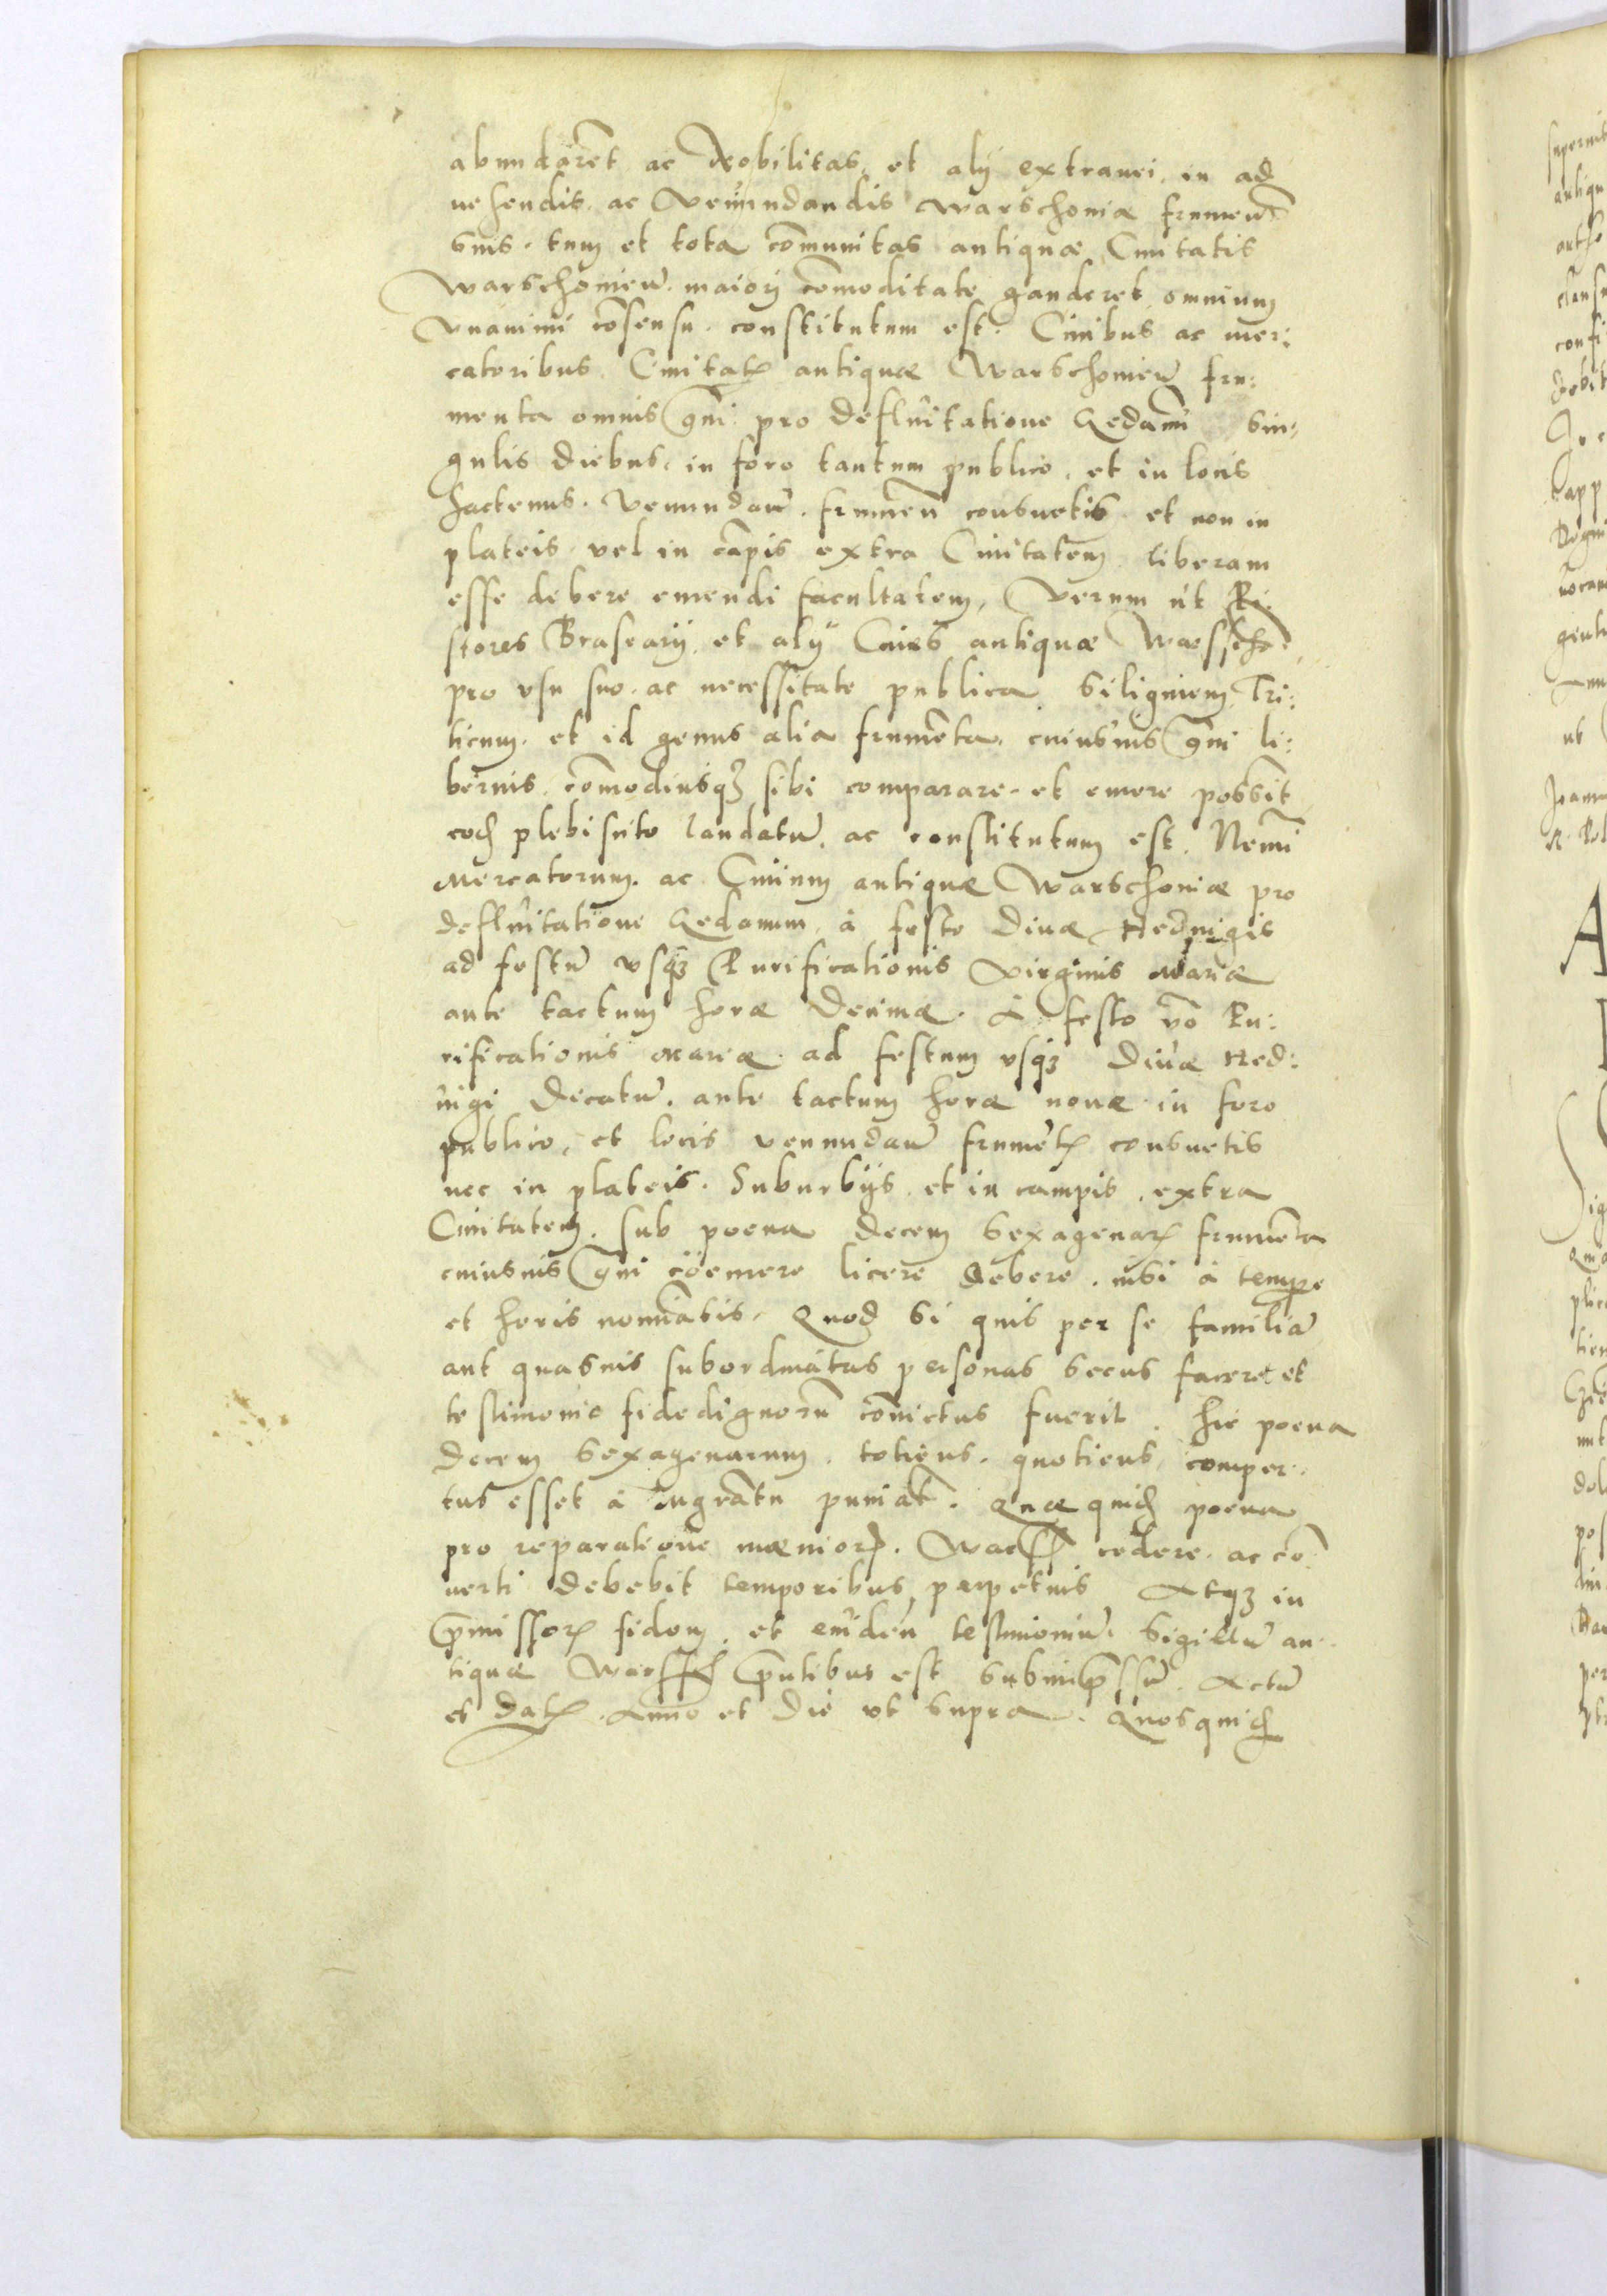 abundaret ac Nobilitas et alij extranei in ad
uehendis ac Venundandis Warschoniæ frumen̄
suis tum et tota com̄unitas antiquæ Ciuitatis
Warschonien̄ maiori com̄oditate gauderet omnium
Vnanimi cōsensu constitutum est. Ciuibus ac mer:
catoribus Ciuitatꝭ antiquæ Warschonien̄ fru:
menta omnis gn̄i pro defluitatione Gedanū sin:
gulis diebus in foro tantum publico et in locis
hactenus Venundan̄ frumen̄ consuetis et non in
plateis vel in cāpis extra Ciuitatem liberam
esse debere emendi facultatem, Verum ut Pi:
stores Braseatij et alij Ciues antiquæ Warscho:
pro vsu suo ac necessitate publica siliginem Tri:
ticum et id genus alia frumēta cuiusuis gn̄i li:
berius com̄odiusqꝫ sibi comparare et emere possit
eod̄ plebiscito laudatū ac constitutum est. Nemī
Mercatorum ac Ciuium antiquæ Warschoniæ pro
defluitatione Gedanum à festo Diuæ Heduigis
ad festū vsqꝫ Purificationis Virginis Mariæ
ante tactum horæ decimæ. A festo vō Pu:
rificationis Mariæ ad festum vsqꝫ Diuæ Hed:
uigi dicatū ante tactum horæ nonæ in foro
publico, et locis venundan̄ frumētꝭ consuetis
nec in plateis Suburbijs et in campis extra
Ciuitatem sub poena decem sexagenarꝭ frumēta
cuiusuis gn̄i coëmere licere debere nisi à tempe
et horis nomīatis. Quod si quis per se familiā
aut quasuis subordinatas personas secus facere et
testimonio fidedignorū cōuictus fuerit. hic poena
decem sexagenarum totiens quotiens comper:
tus esset à Mgrātu puniat̄. Quæ quid̄ poena
pro reparatione mæniorꝭ Warss̄ cedere ac cō:
uerti debebit temporibus perpetuis Atqꝫ in
p̄missorꝭ fidem et euiden̄ testimoniū Sigillū an:
tiquæ Warss̄ p̄ntibus est subimp̄ssū. Actū
et datꝭ Anno et die vt supra. Quosquid̄